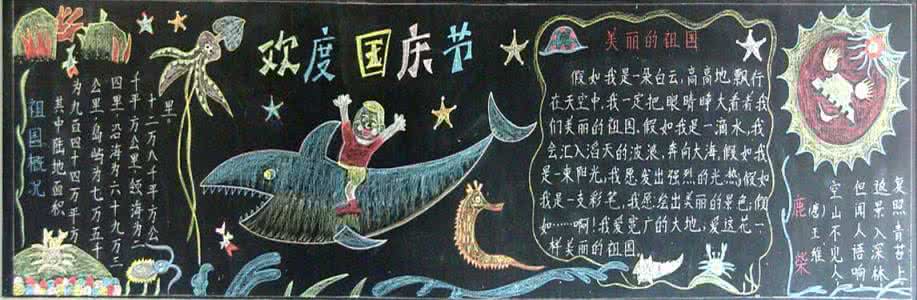 欢度国庆节
祖国概况
其中陆地面积
为九百四十四万平方
公里,岛屿为七万五千
四里,沿海为六十九万二
千平方公里,领海为二
十二万八千平方公
里.
美丽的祖国
假如我是一朵白云,高高地飘行
在天空中,我一定把眼睛睁大看看我
们美丽的祖国.假如我是一滴水,我
会汇入滔天的波浪,奔向大海.假如我
是一束阳光,我愿发出强烈的光热;假如
我是一支彩笔,我愿绘出美丽的景色;假
如……啊!我爱宽广的大地,爱这花一
样美丽的祖国.
鹿柴
(唐)王维
空山不见人,
但闻人语响
返景入深林
复照青苔上